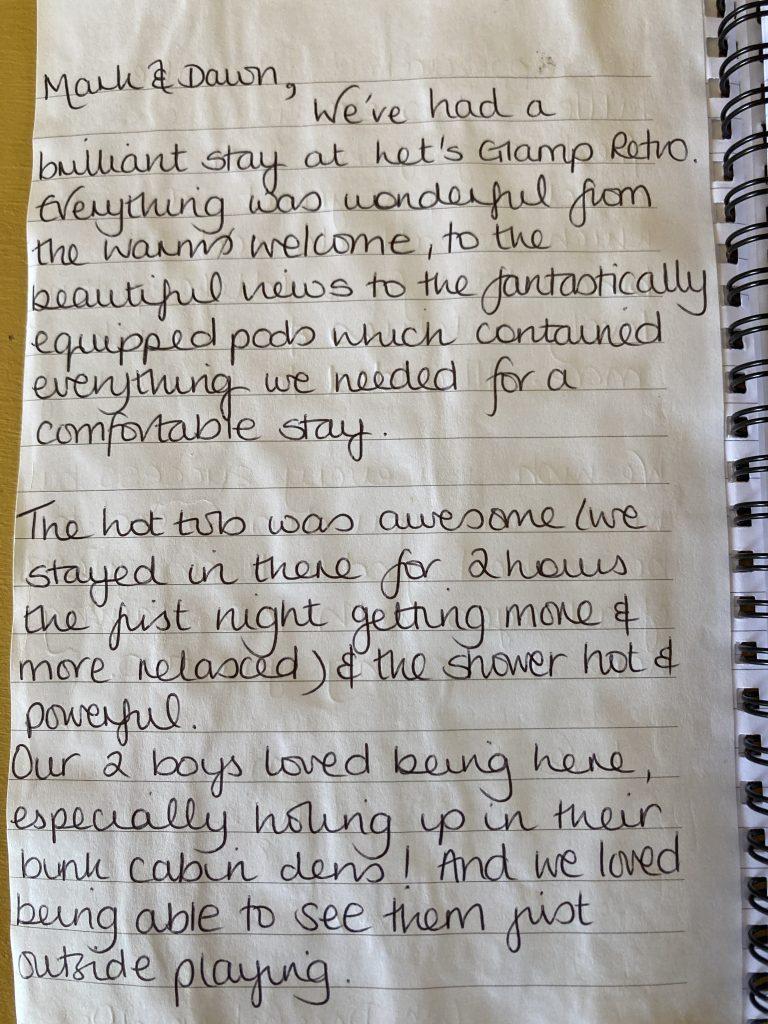 Mark & Dawn,
We've had a
brilliant stay at Let's Glamp Retro.
Everything was wonderful from
the warm welcome, to the
beautiful views to the fantastically
equipped pods which contained
everything we needed for a
comfortable stay.
The hot tub was awesome (we
stayed in there for 2 hours
the first night getting more &
more relaxed) & the shower hot &
powerful.
Our 2 boys loved being here,
especially holing up in their
bunk cabin dens! And we loved
being able to see them just
outside playing.